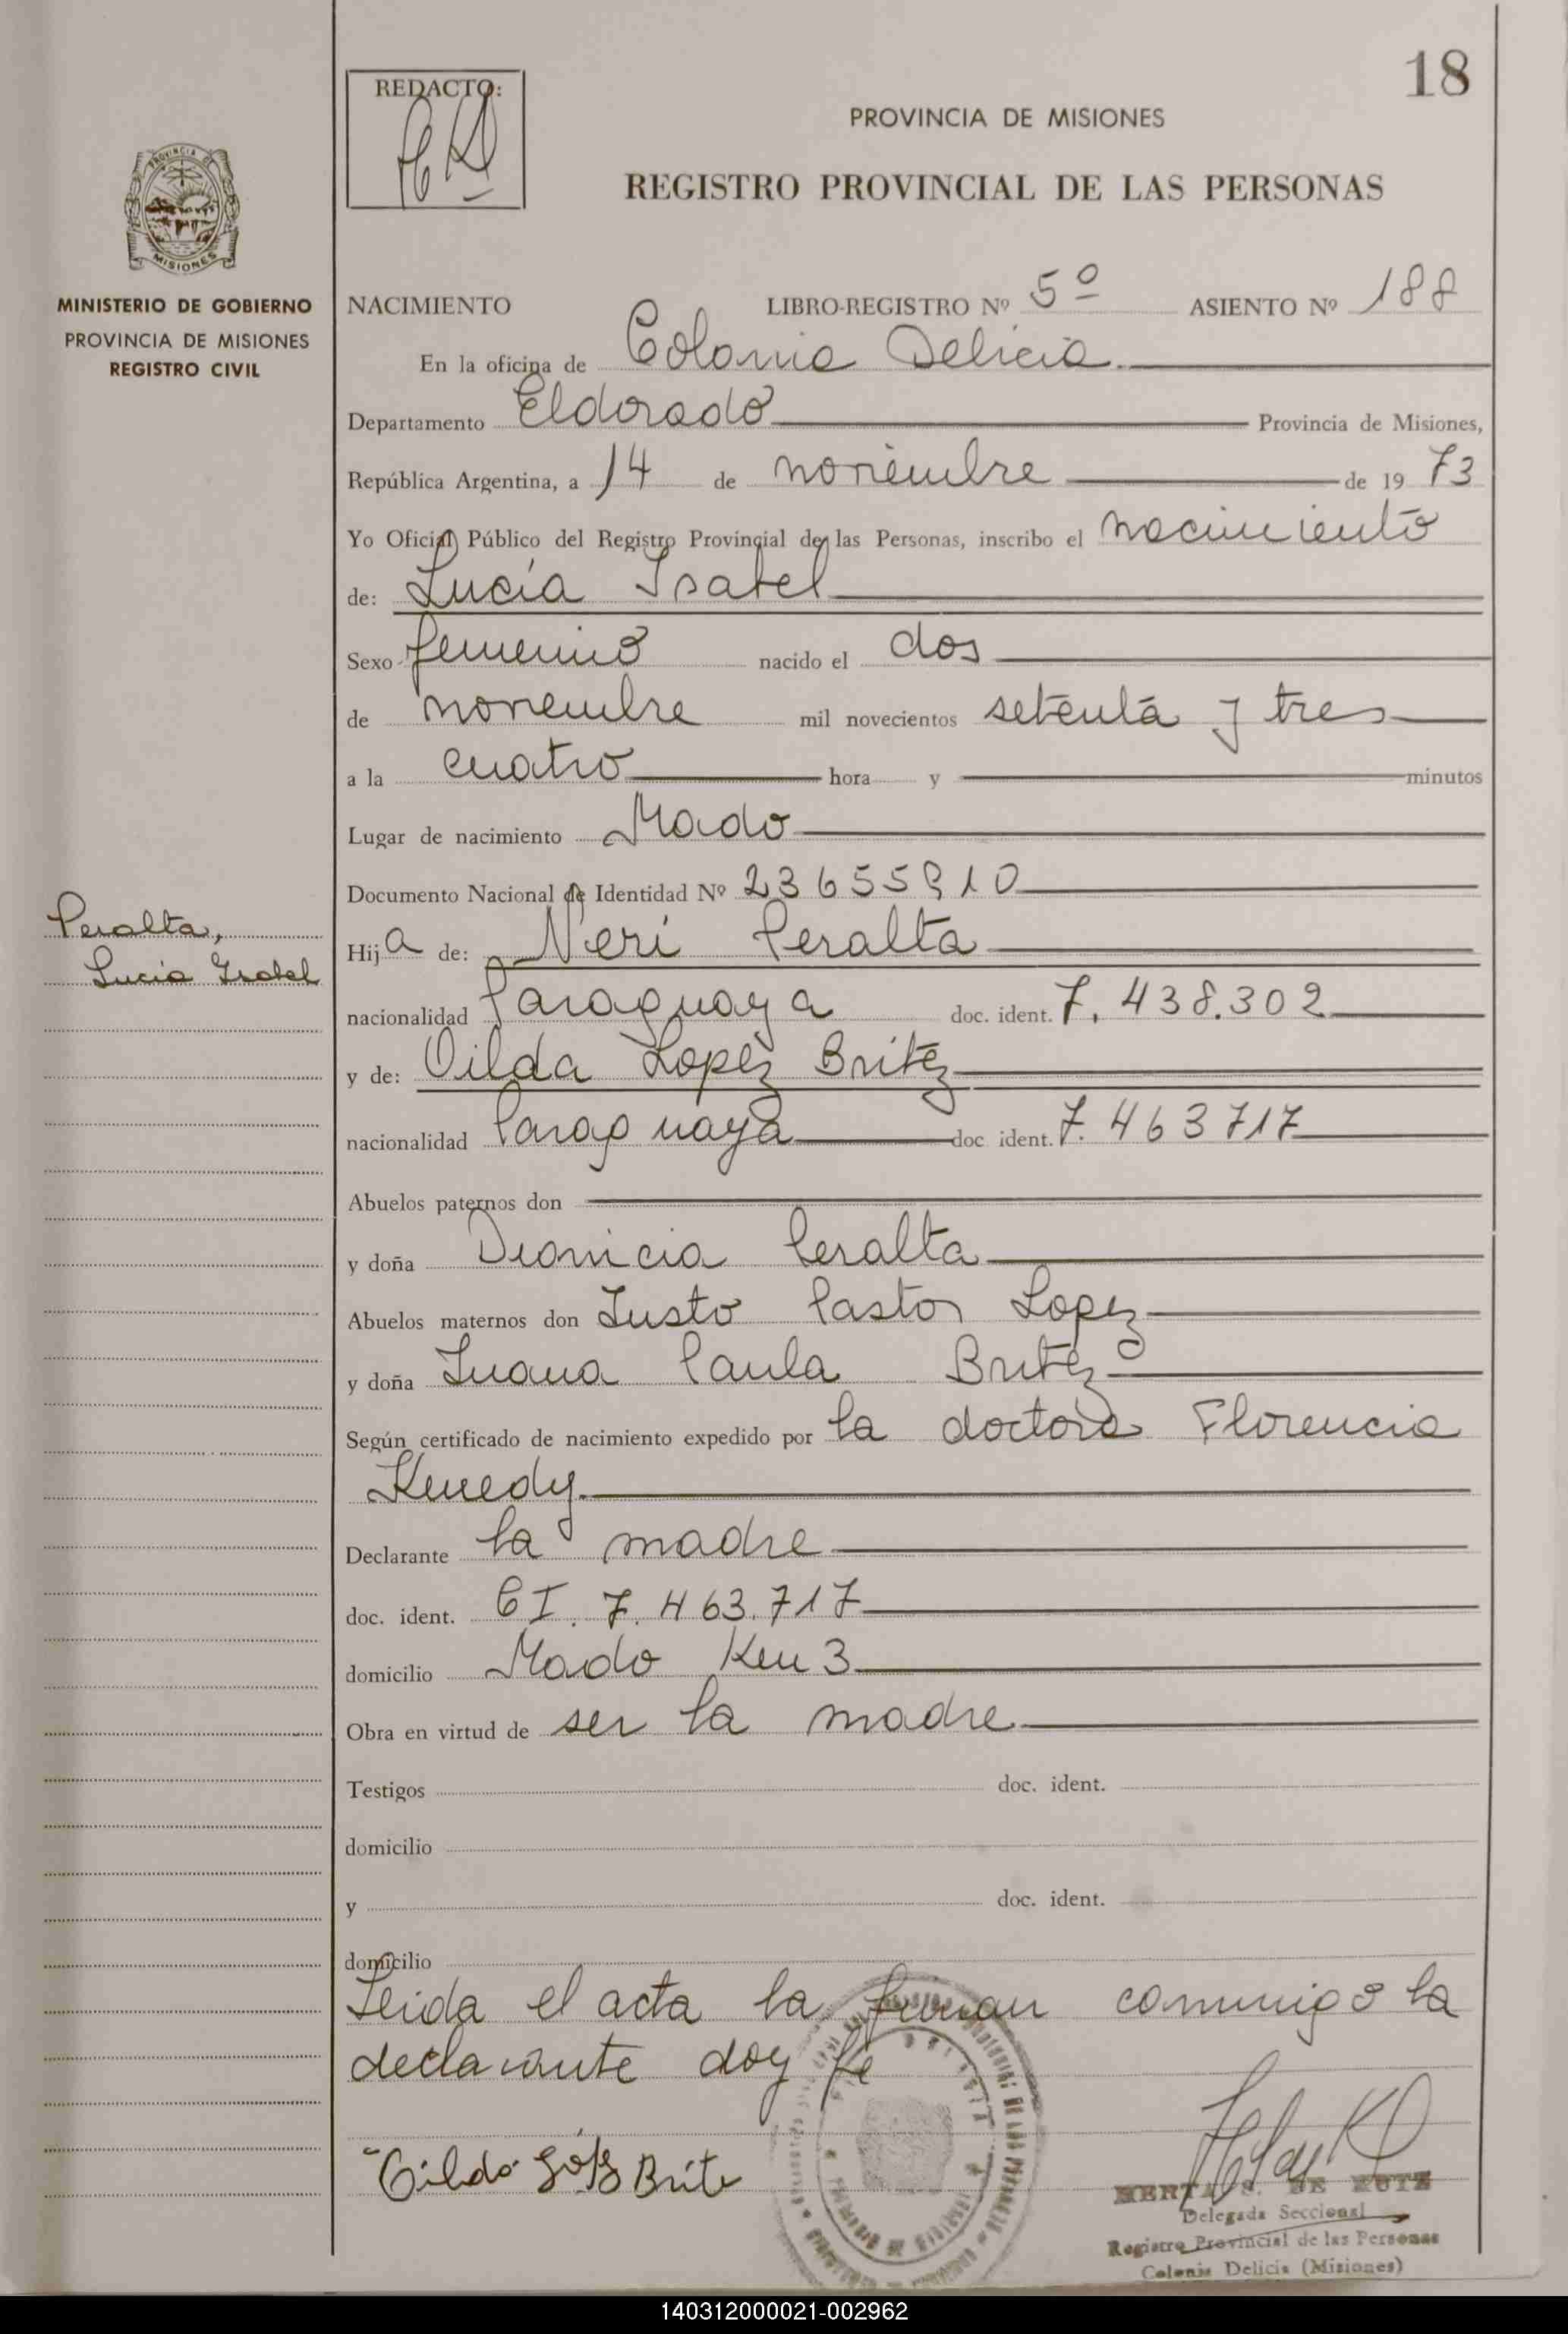 18
REDACTO:
PROVINCIA DE MISIONES
REGISTRO PROVINCIAL DE LAS PERSONAS
MISIONES
MINISTERIO DE GOBIERNO
PROVINCIA DE MISIONES
REGISTRO CIVIL
NACIMIENTO LIBRO-REGISTRO Nº 5º ASIENTO Nº 188
En la oficina de Colonia Delicia
Departamento Eldorado Provincia de Misiones,
República Argentina, a 14 de noviembre de 1973
Yo Oficial Público del Registro Provincial de las Personas, inscribo el nacimiento
de: Lucía Isabel
Sexo femenino nacido el dos
de noviembre mil novecientos setenta y tres
a la cuatro hora y minutos
Lugar de nacimiento Mado
Documento Nacional de Identidad Nº 23655910
Peralta,
Lucia Isabel
Hija de: Neri Peralta
nacionalidad Paraguaya doc. ident. 7.438.302
y de: Gilda Lopez Britez
nacionalidad Paraguaya doc ident. 7.463717
Abuelos paternos don
y doña Dionicia Peralta
Abuelos maternos don Justo Pastor Lopez
y doña Juana Paula Britez
Según certificado de nacimiento expedido por la doctora Florencia
Kenedy
Declarante la madre
doc. ident. CI. 7.463.717
domicilio Mado Km 3
Obra en virtud de ser la madre
Testigos doc. ident.
domicilio
y doc. ident.
domicilio
Leida el acta la firman conmigo la
declarante doy fe
Delegada Seccional
Registro Provincial de las Personas
Colonia Delicia (Misiones)
140312000021-002962